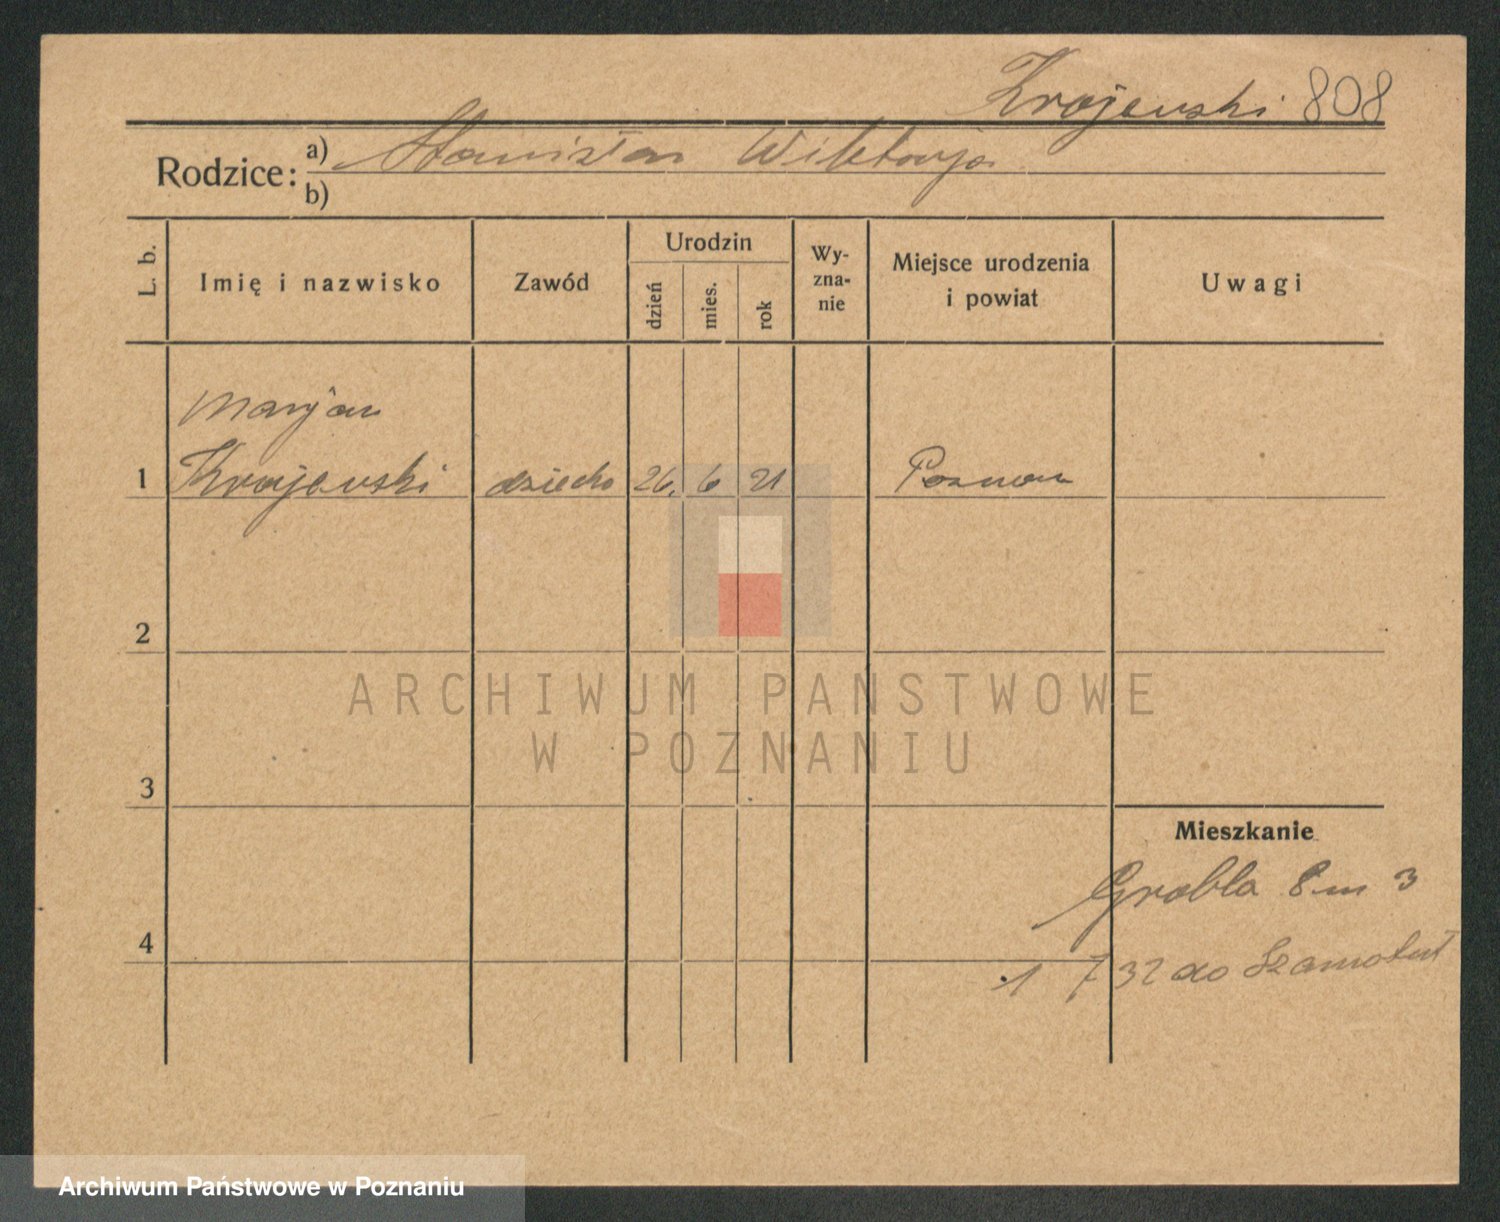 Krajewski 808
Rodzice: a) Stanisław Wiktorja
b)
L. b.
Imię i nazwisko
Zawód
Urodzin
dzień
mies.
rok
Wy-
zna-
nie
Miejsce urodzenia
i powiat
Uwagi
Marjan
1 Krajewski dziecko 26. 6 21 Poznan
2
ARCHIWUM PAŃSTWOWE
W POZNANIU
3
Mieszkanie
Grobla 8 m 3
4
1 7 32 do Szamotuł
Archiwum Państwowe w Poznaniu